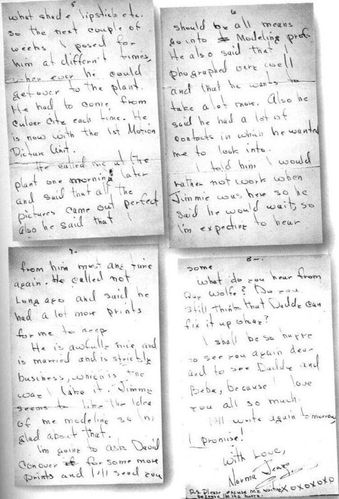 what shade lipstick etc.
so the next couple of
weeks I posed for
him at different times,
when ever he could
get over to the plant.
He had to come from
Culver City each time. He
is now with the 1st Motion
Picture Unit.
He called me at the
plant one morning later
and said that all the
pictures came out perfect
also he said that I
6
should by all means
go into Modeling prof
He also said that I
phographed very well
and that he wants to
take a lot more. Also he
said he had a lot of
contacts in which he wanted
me to look into.
I told him I would
rather not work when
Jimmie was here so he
said he would wait, so
I'm expecting to hear
7.
from him most any time
again. He called not
long ago and said he
had a lot more prints
for me to keep
He is awfully nice and
is married and is strictly
business, which is the
way I like it. Jimmie
seems to like the idea
of me modeling so I'm
glad about that.
I'm going to ask David
Conover for some more
prints and I'll send you
8
some
What do you hear from
Do you
still think that Daddy can
fix it up okay?
I shall be so happy
to see you again dear
and to see Daddy and
Bebe, because I love
you all so much.
I'll write again tomorrow
I promise!
With Love,
Norma Jeane
P.S. Please excuse my writing XOXOXOXO